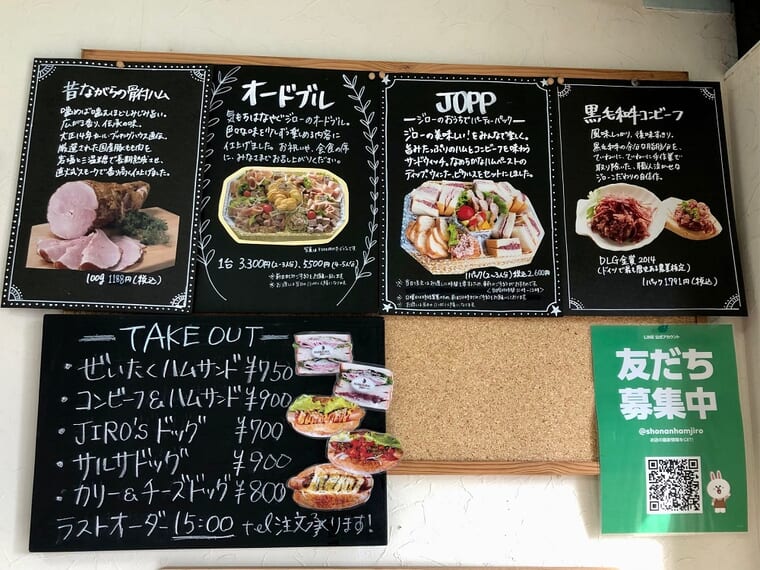 昔ながらの骨付ハム
噛めば噛むほどしみじみ旨い。
広がる香り、伝承の味。
厳選された国産豚ももを
直火スモークで香り高く仕上げました。
100g 1188円(税込)
オードブル
気もちはなやぐジローのオードブル。
仕上げました。お祝いや、会食の
席に、みなさまでお召し上がりください。
1台 3,300円(2~3人分)、5,500円(4~5人分)
JOPP
ージローのおうちでパーティーパックー
ジローの美味しい!をみんなで楽しく。
旨みたっぷりのハムとコンビーフを味わう
サンドウィッチ、なめらかなハムペーストの
ディップ、ウィンナー、ピクルスをセットにしました。
1パック(2~3人分) 税込2,600円
黒毛和牛コンビーフ
風味しっかり、後味すっきり。
黒毛和牛の余分な脂肪分を、
ていねいに、ていねいに手作業で
取り除いた、職人泣かせな
ジローこだわりの自信作。
DLG金賞2014
(ドイツで最も歴史ある農業協会)
1パック 1791円(税込)
TAKE OUT
・ぜいたくハムサンド ¥750
・コンビーフ&ハムサンド ¥900
・JIRO'Sドッグ ¥700
・サルサドッグ ¥900
・カリー&チーズドッグ ¥800
ラストオーダー 15:00 tel注文承ります!
LINE 公式アカウント
友だち
募集中
@shonanhamjiro
お店の最新情報をGET!